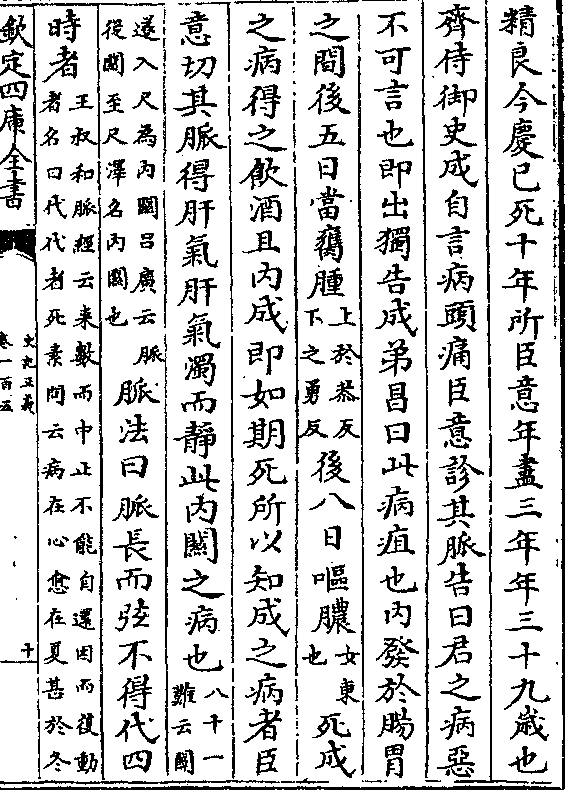 精良今慶已死十年所臣意年盡三年年三十九歲也
齊侍御史成自言病頭痛臣意診其脈告曰君之病惡
不可言也即出獨告成弟昌曰此病疽也内發於腸胃
之間後五日當癕腫上於恭反下之勇反後八日嘔膿女東也死成
之病得之飲酒且内成即如期死所以知成之病者臣
意切其脈得肝氣肝氣濁而靜此内關之病也八十一難云關
遂入尺為内關呂廣云脈從關至尺澤名内關也脈法曰脈長而弦不得代四
時者王叔和脈經云来數而中止不能自還因而復動者名曰代代者死素問云病在心愈在夏甚於冬
欽定四庫全書
史記正義
卷一百五
十